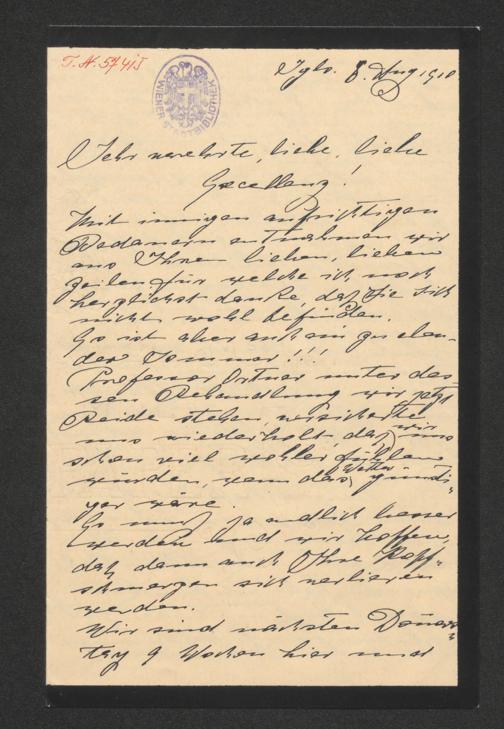 I. N. 57415
WIENER STADTBIBLIOTHEK
8. Aug 1910
Sehr verehrte, liebe, liebe
Excellenz!
Mit innigen aufrichtigen
Bedauern entnahmen wir
aus Ihren lieben, lieben
Zeilen für welche ich noch
herzlichst danke, daß Sie sich
nicht wohl befinden.
Es ist aber auch ein zu elen-
der Sommer!!!
Professor Ortner unter des-
sen Behandlung wir jetzt
Beide stehen, versicherte
uns wiederholt, daß wir uns
schon viel wohler fühlen
würden, wenn das Wetter günsti-
ger wäre.
Es muß ja endlich besser
werden und wir hoffen,
daß dann auch Ihre Kopf-
schmerzen sich verlieren
werden.
Wir sind nächsten Donners-
tag 9 Wochen hier und